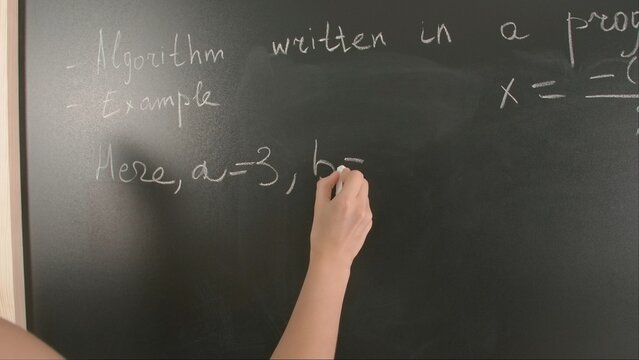 - Algorithm written in a prog
- Example
x = -(
Here, a=3, b=